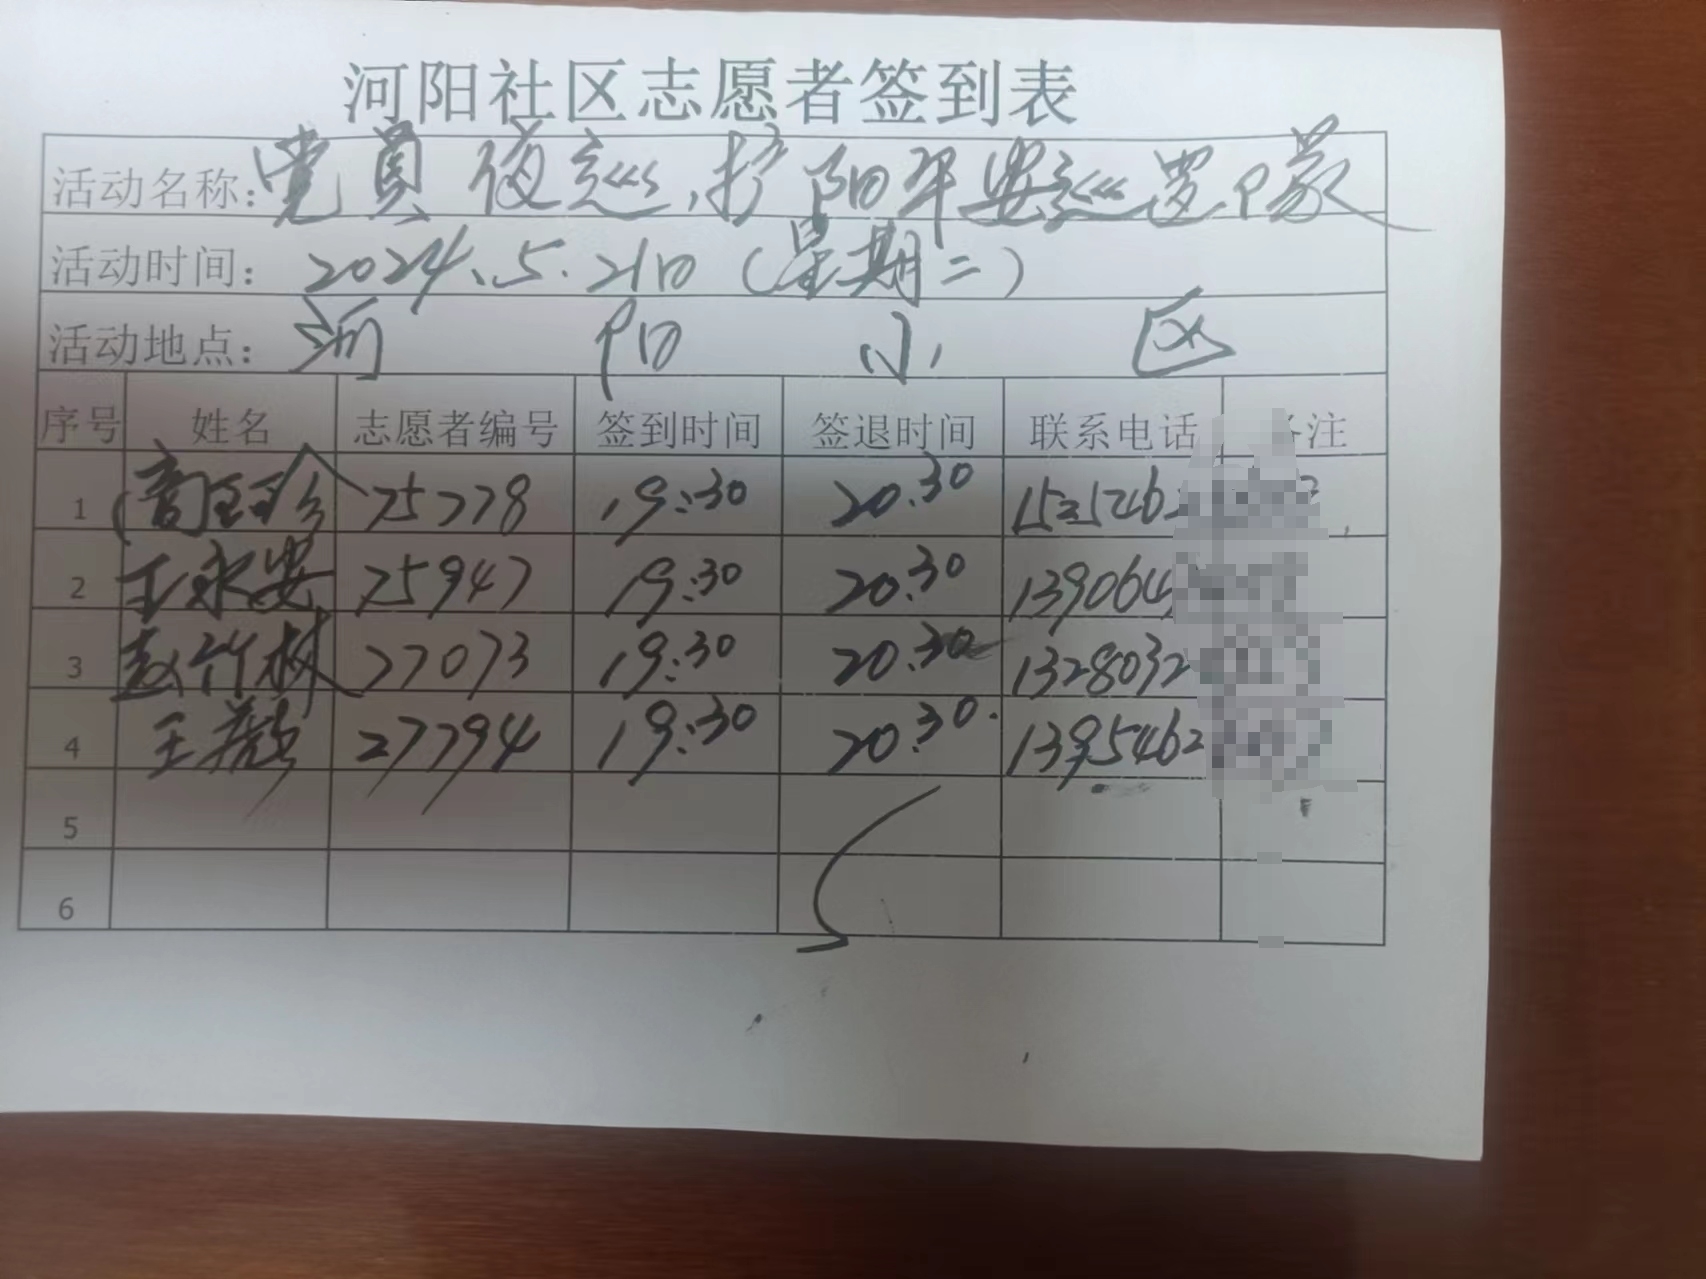 河阳社区志愿者签到表
活动名称:党员夜巡,护阳平安巡逻
活动时间: 2024、5.21日(星期二)
活动地点: 河阳小区
序号 姓名 志愿者编号 签到时间 签退时间 联系电话 备注
1 75778 19:30 20:30 1525462
2 王永安 75947 19:30 20:30 139064
3 赵竹林 27073 19:30 20:30 1328032
4 王 27794 19:30 20:30. 1395462
5
6